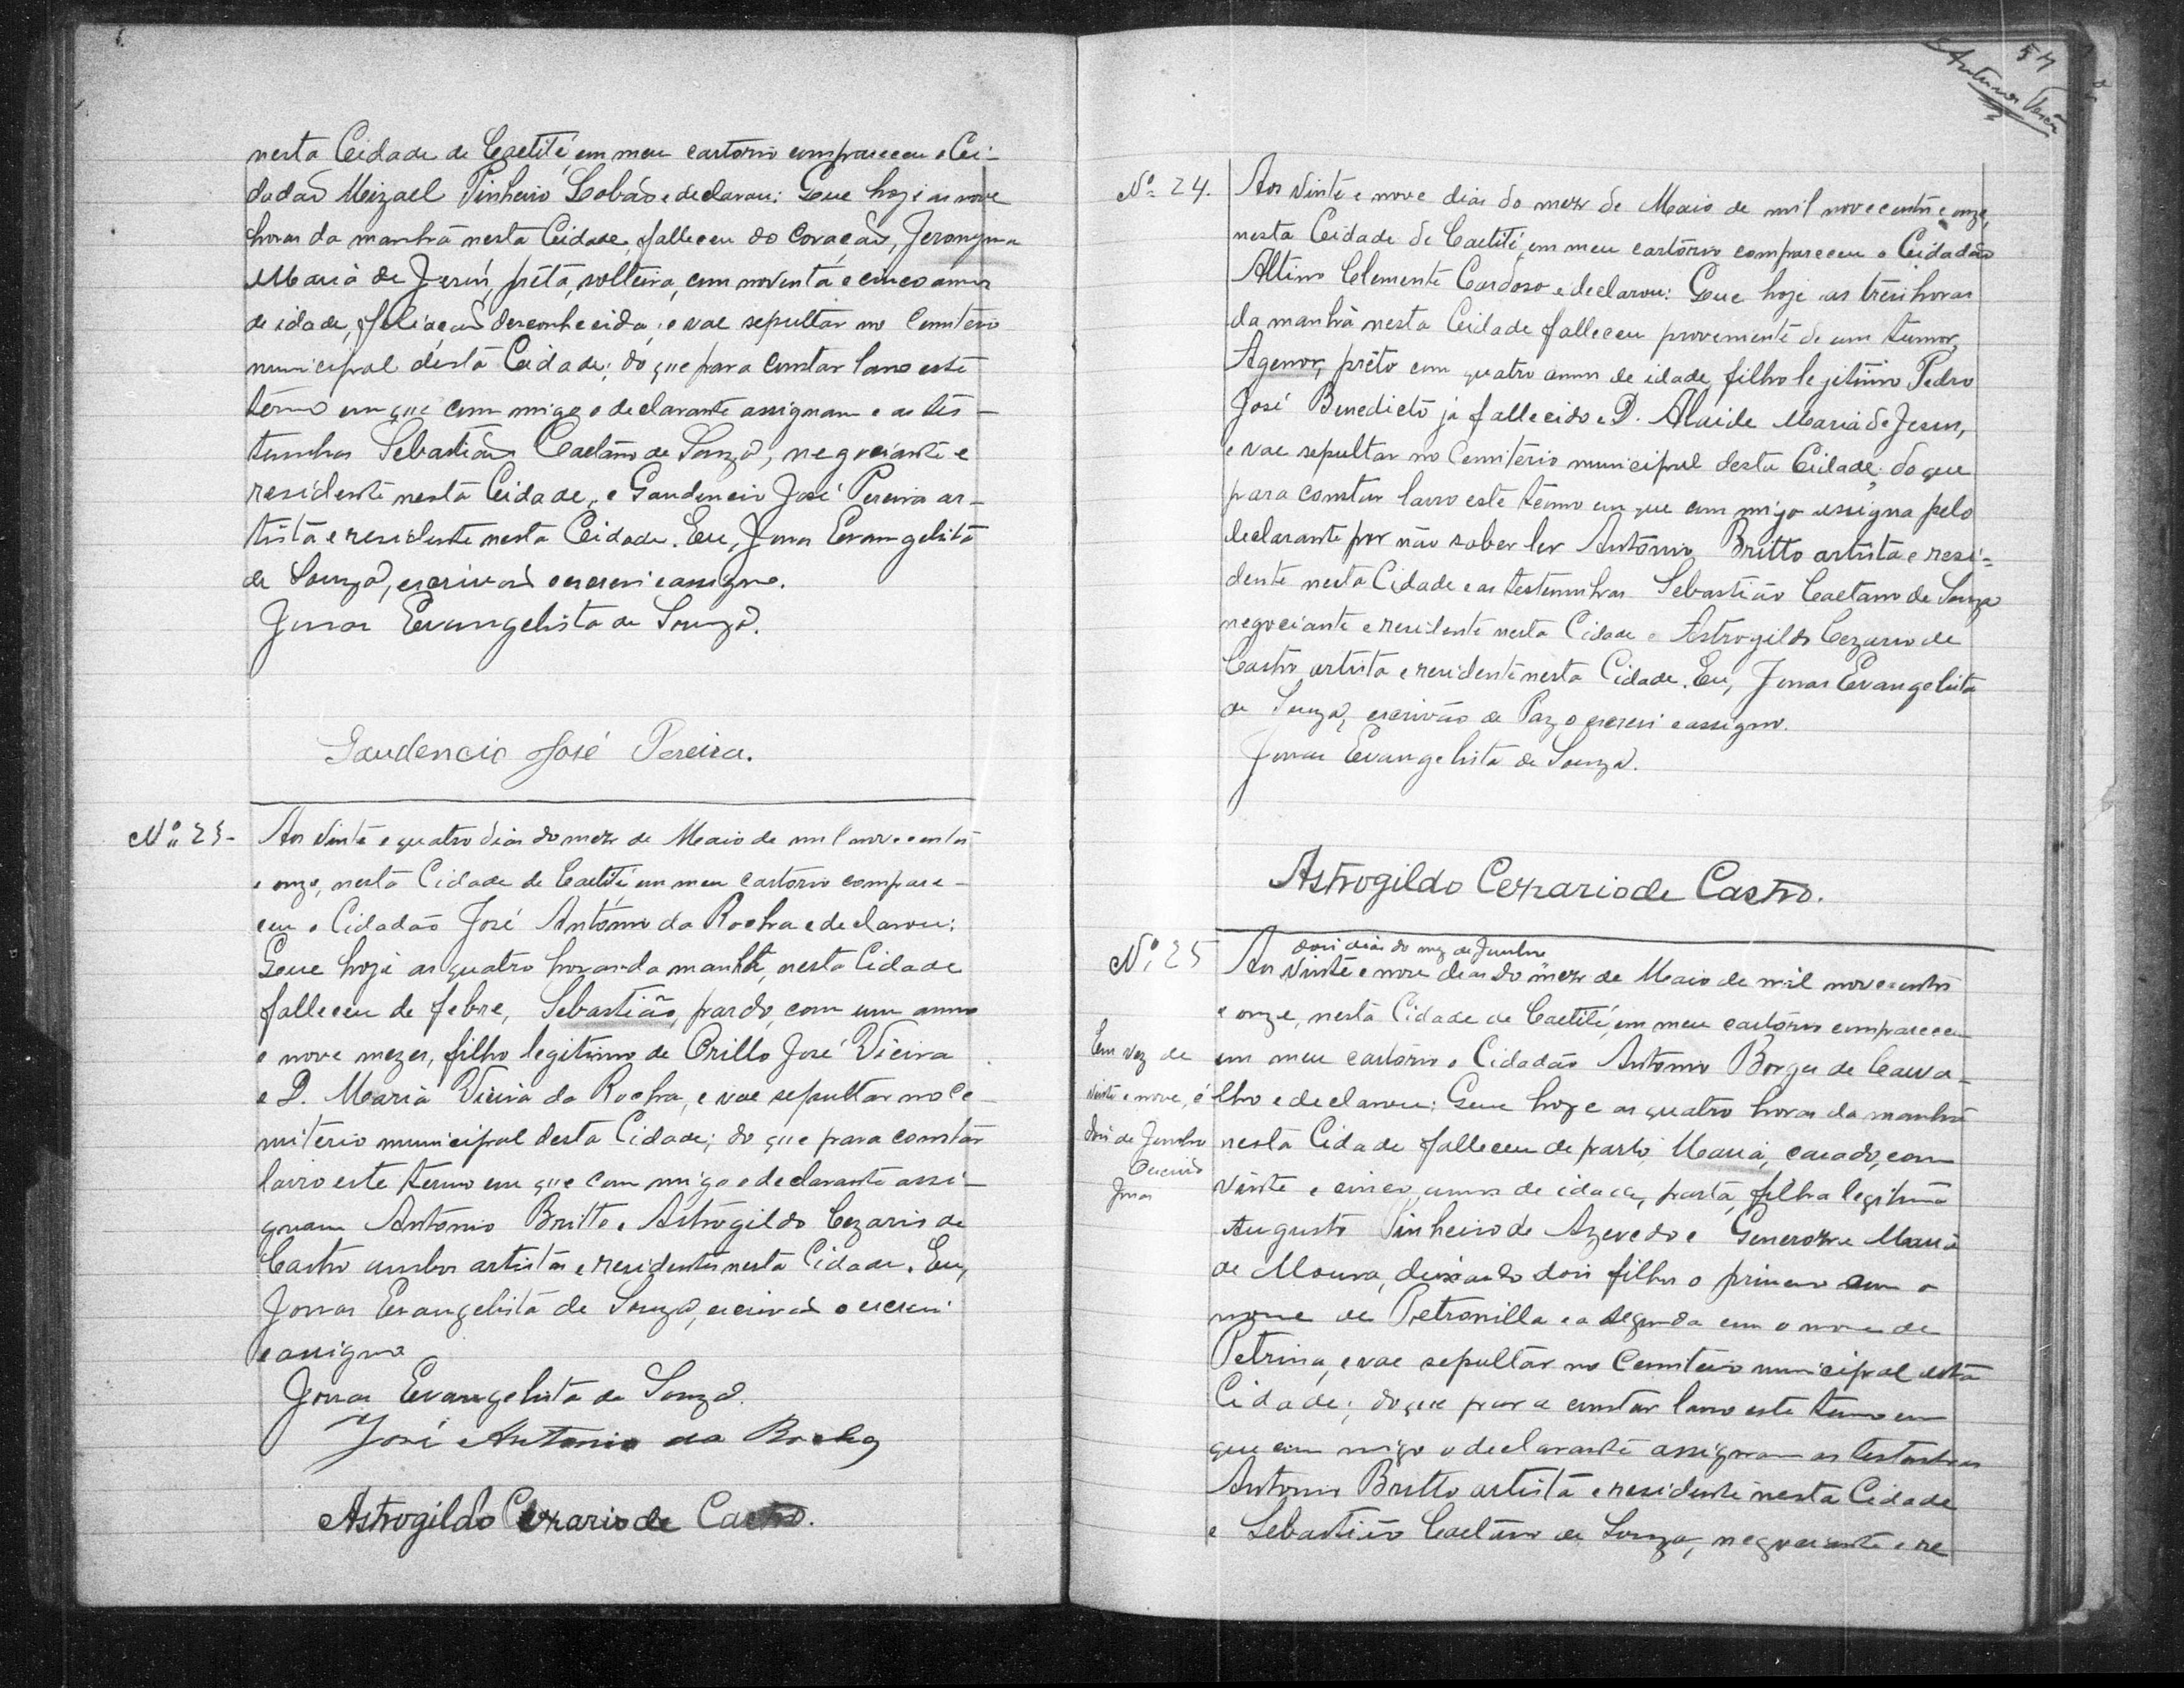 nesta Cidade de Caetité, em meu cartorio compareceu o Ci-
dadão Mizael Pinheiro Lobão e declarou: Que hoje as nove
horas da manhã nesta Cidade, falleceu do coração, Jeronyma
Maria de Jesus, préta, solteira, com noventa e cinco annos
de idade, filiação desconhecida, e vae sepultar no Cemiterio
municipal desta Cidade; do que para constar lavro este
termo em que commigo o declarante assignam e as tes-
temunhas Sebastião Caetano de Souza, negociante e
residente nesta Cidade, e Gaudencio José Pereira ar-
tista e residente nesta Cidade. Eu, Jonas Evangelista
de Souza, escrivão o escrevi e assigno.
Jonas Evangelista de Souza.
Gaudencio José Pereira.
Nº 23- Aos vinte e quatro dias do mez de Maio de mil novecentos
e onze, nesta Cidade de Caetité, em meu cartorio compare-
ceu o Cidadão José Antonio da Rocha e declarou:
Que hoje as quatro horas da manhã, nesta Cidade
falleceu de febre, Sebastião, pardo, com um anno
e nove mezes, filho legitimo de Orillo José Vieira
e D. Maria Vieira da Rocha, e vae sepultar no Ce-
miterio municipal desta Cidade; do que para constar
lavro este termo em que commigo o declarante assi-
gnam Antonio Britto e Astrogildo Cezario de
Castro ambos artistas e residentes nesta Cidade. Eu,
Jonas Evangelista de Souza, escrivão o escrevi
e assigno
Jonas Evangelista de Souza.
José Antonio da Rocha
Astrogildo Cezario de Castro.
57
Nº 24. Aos vinte e nove dias do mez de Maio de mil novecentos e onze,
nesta Cidade de Caetité, em meu cartorio compareceu o Cidadão
Altino Clemente Cardoso e declarou: Que hoje as tres horas
da manhã nesta Cidade falleceu proveniente de um tumor,
Agenor, prêto com quatro annos de idade, filho legitimo Pedro
José Benedicto já fallecido e D. Alaide Maria de Jesus,
e vae sepultar no Cemiterio municipal desta Cidade; do que
para constar lavro este termo em que commigo assigna pelo
declarante por não saber ler Antonio Britto artista e resi-
dente nesta Cidade e as testemunhas Sebastião Caetano de Souza
negociante e residente nesta Cidade e Astrogildo Cezario de
Castro artista e residente nesta Cidade. Eu, Jonas Evangelista
de Souza, escrivão de Paz o escrevi e assigno.
Jonas Evangelista de Souza.
Astrogildo Cezario de Castro.
dois dias do mez de Junho
Nº 25 Aos vinte e nove dias do mez de Maio de mil novecentos
e onze, nesta Cidade de Caetité, em meu cartorio compareceu
em meu cartorio o Cidadão Antonio Borges de Carva-
lho e declarou: Que hoje as quatro horas da manhã
nesta Cidade falleceu de parto, Maria, casada, com
vinte e cinco annos de idade, parda, filha legitima
Augusto Pinheiro de Azevedo e Generoza Maria
de Moura, deixando dois filhos o primeiro com o
nome de Petronilla e a segunda com o nome de
Petrina, e vae sepultar no Cemiterio municipal desta
Cidade; do que para constar lavro este termo em
que commigo o declarante assignam as testemunhas
Antonio Britto artista e residente nesta Cidade
e Sebastião Caetano de Souza, negociante e re
Em vez de
vinte e nove, é
dois de Junho
Jonas